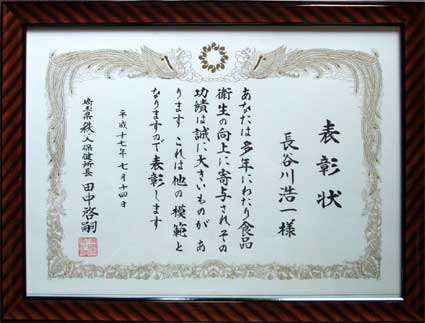 表彰状
長谷川浩一様
あなたは多年にわたり食品
衛生の向上に寄与されその
功績は誠に大きいものがあ
ります これは他の模範と
なりますので表彰します
平成十七年七月十四日
埼玉県秩父保健所長 田中啓嗣